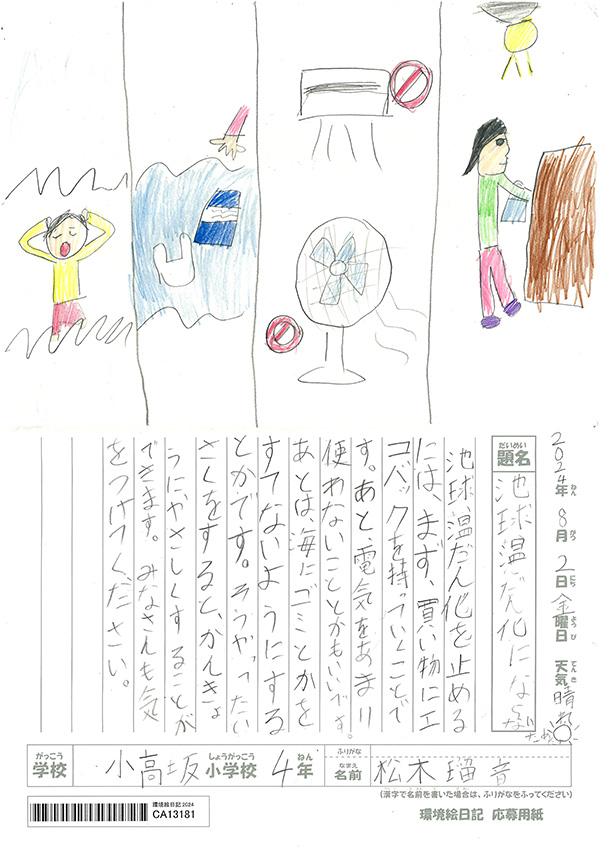 2024年 8月 2日 金曜日 天気 晴
だいめい
題名
池球温だん化にならないため
池球温だん化を止める
には、まず、買い物にエ
コバックを持っていくことで
す。あと、電気をあまり
使わないこととかもいいです。
あとは、海にゴミとかを
すてないようにする
とかです。そうやったたい
さくをすると、かんきょ
うにやさしくすることが
できます。みなさんも気
をつけてください。
がっこう しょうがっこう ねん ふりがな
学校 小高坂 小学校 4年
なまえ
名前 松木瑠音
(漢字で名前を書いた場合は、ふりがなをふってください)
環境絵日記2024
CA13181
環境絵日記 応募用紙